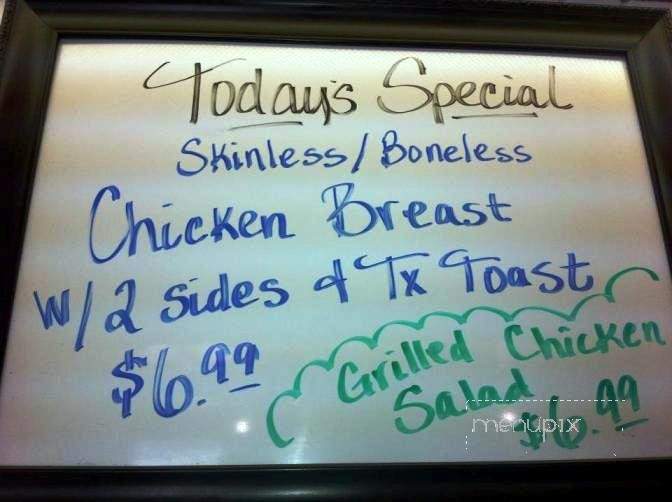 Today's Special
Skinless/Boneless
Chicken Breast
w/2 sides & Tx Toast
$6.99
Grilled Chicken
Salad
$6.99
menupix